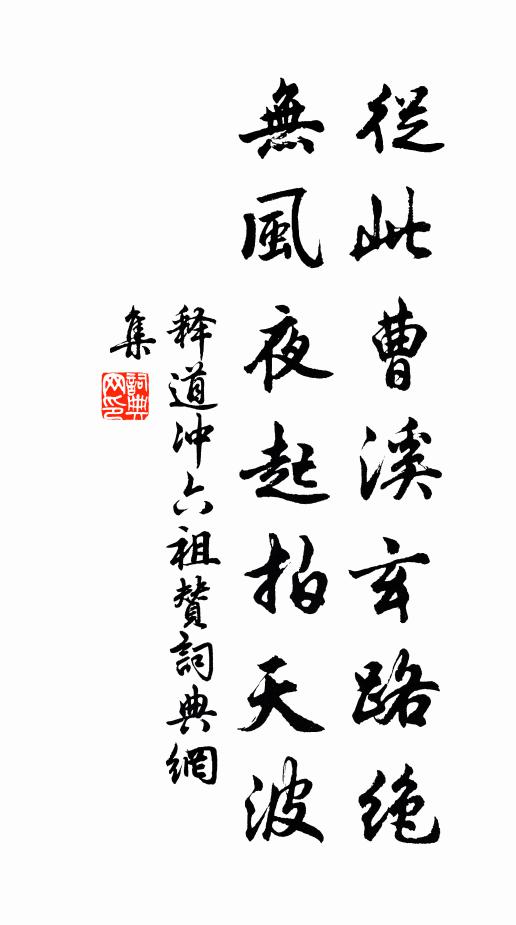 從此曹溪玄路絶
無風夜起拍天波
释道冲六祖赞詞典網
集
詞典
网印